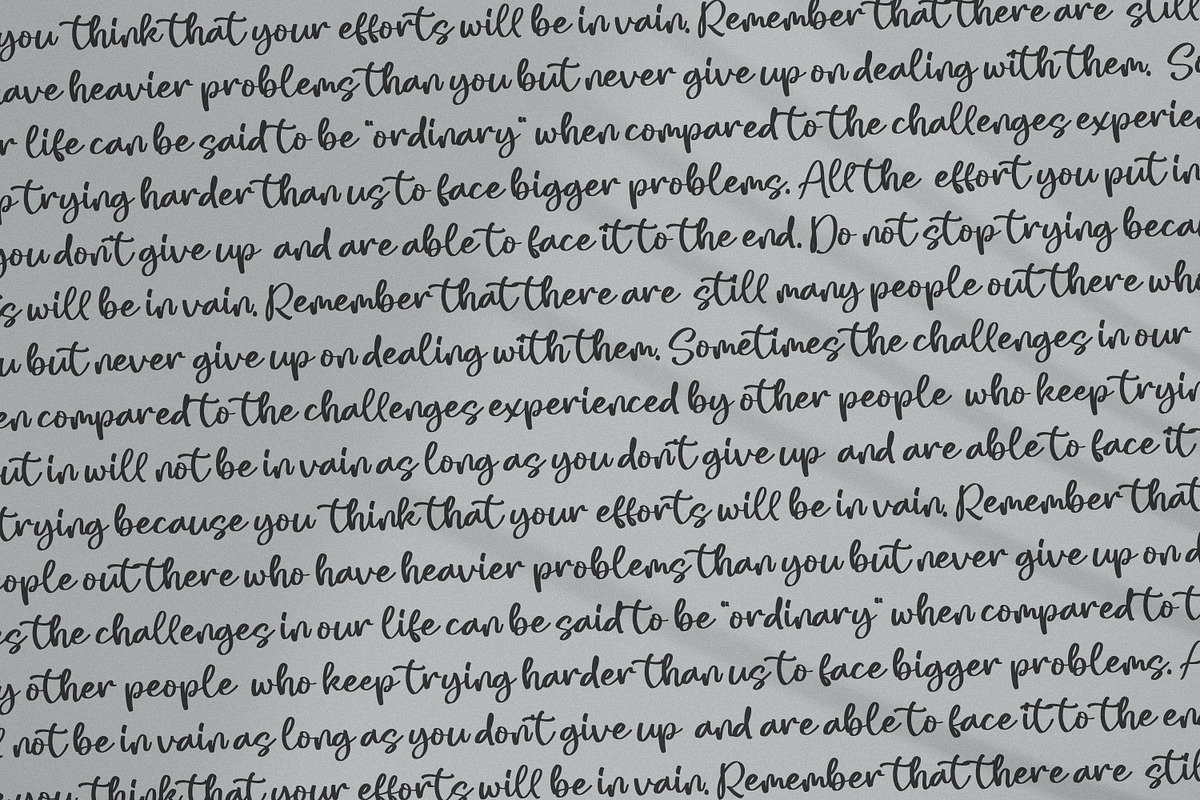 you think that your efforts will be in vain. Remember that there are still
have heavier problems than you but never give up on dealing with them. So
r life can be said to be "ordinary" when compared to the challenges experie
p trying harder than us to face bigger problems. All the effort you put in
you don't give up and are able to face it to the end. Do not stop trying becau
s will be in vain. Remember that there are still many people out there who
u but never give up on dealing with them. Sometimes the challenges in our
en compared to the challenges experienced by other people who keep tryin
ut in will not be in vain as long as you don't give up and are able to face it
trying because you think that your efforts will be in vain. Remember that
ople out there who have heavier problems than you but never give up on d
es the challenges in our life can be said to be "ordinary" when compared to t
y other people who keep trying harder than us to face bigger problems. A
l not be in vain as long as you don't give up and are able to face it to the en
you think that your efforts will be in vain. Remember that there are stil